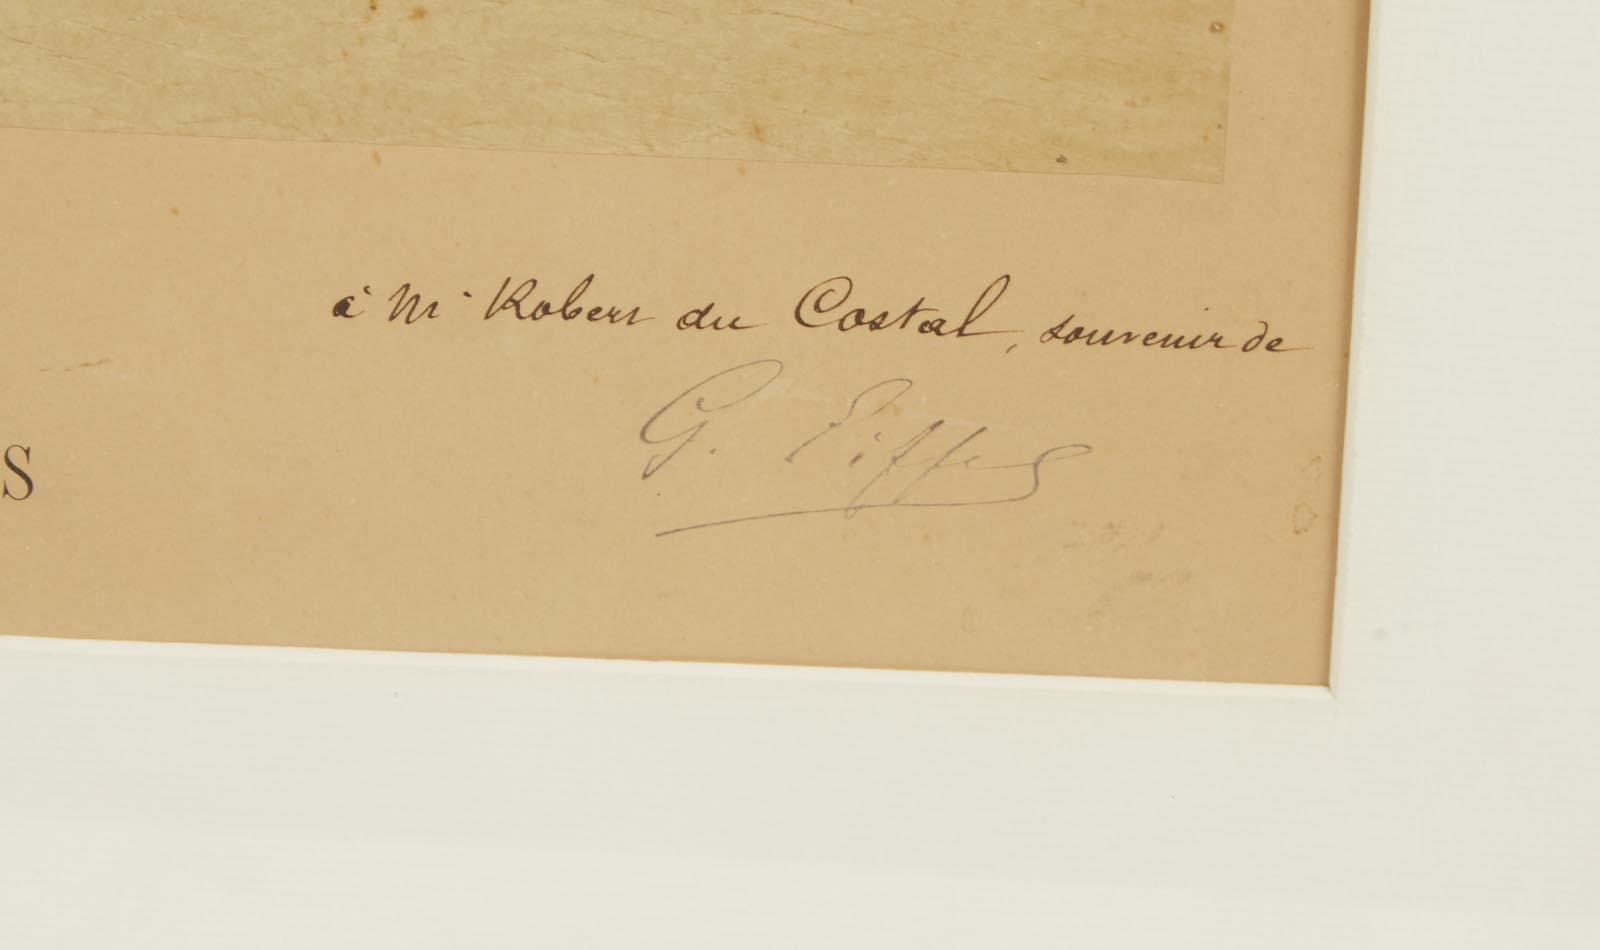 à Mr Robert du Costal, souvenir de
G. Eiffel
S